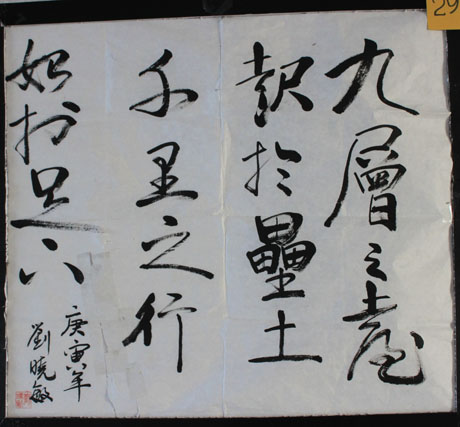 九層之臺
起於壘土
千里之行
始於足下
庚寅年
劉曉敏
29